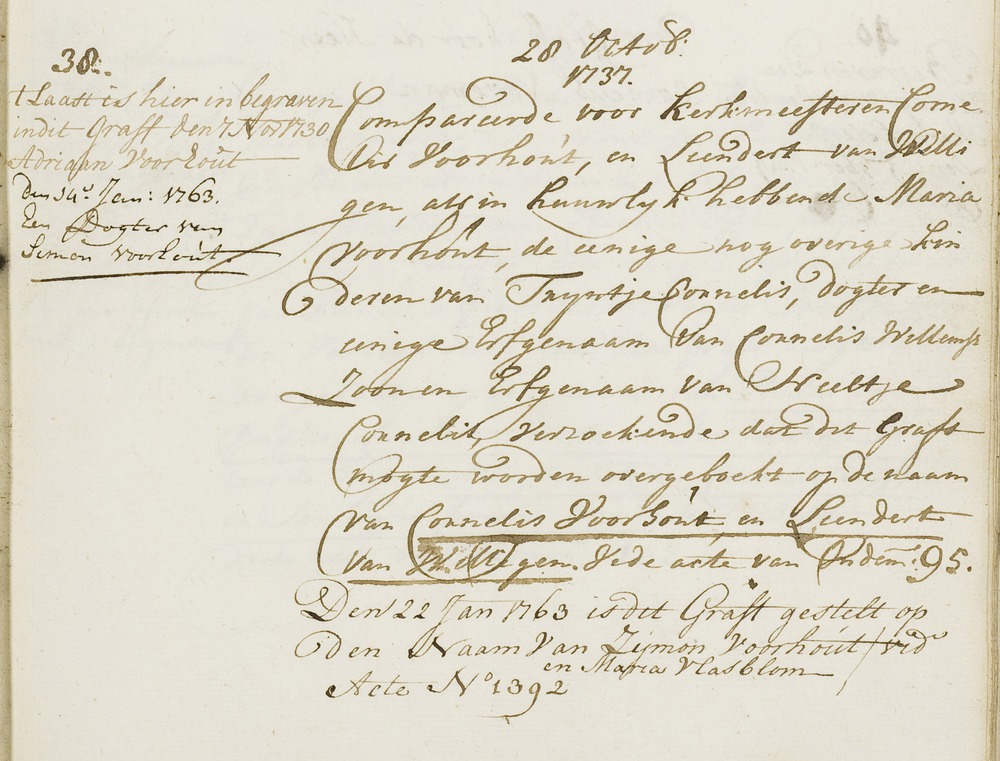 38.
t Laast is hier in begraven
in dit Graff den 7 Nov 1730
Adriaan Voorhout
den 14e Jan: 1763.
Een Dogter van
Simon Voorhout.
28 Octob:
1737.
Compareerde voor Kerkmeesteren Corne
lis Voorhout, en Leendert van Willi
gen, als in huuwlyk hebbende Maria
Voorhout, de eenige nog overige kin
deren van Tryntje Cornelis, dogter en
eenige Erfgenaam van Cornelis Willemsz
Zoon en Erfgenaam van Neeltje
Cornelis, verzoekende dat dit Graft
mogte worden overgeboekt op de naam
van Cornelis Voorhout, en Leendert
van Willigen. Vide acte van Indem: 95.
Den 22 Jan 1763 is dit Graft gestelt op
den Naam Van Zymon Voorhout / vid
en Maria Vlasblom
Acte No 1392